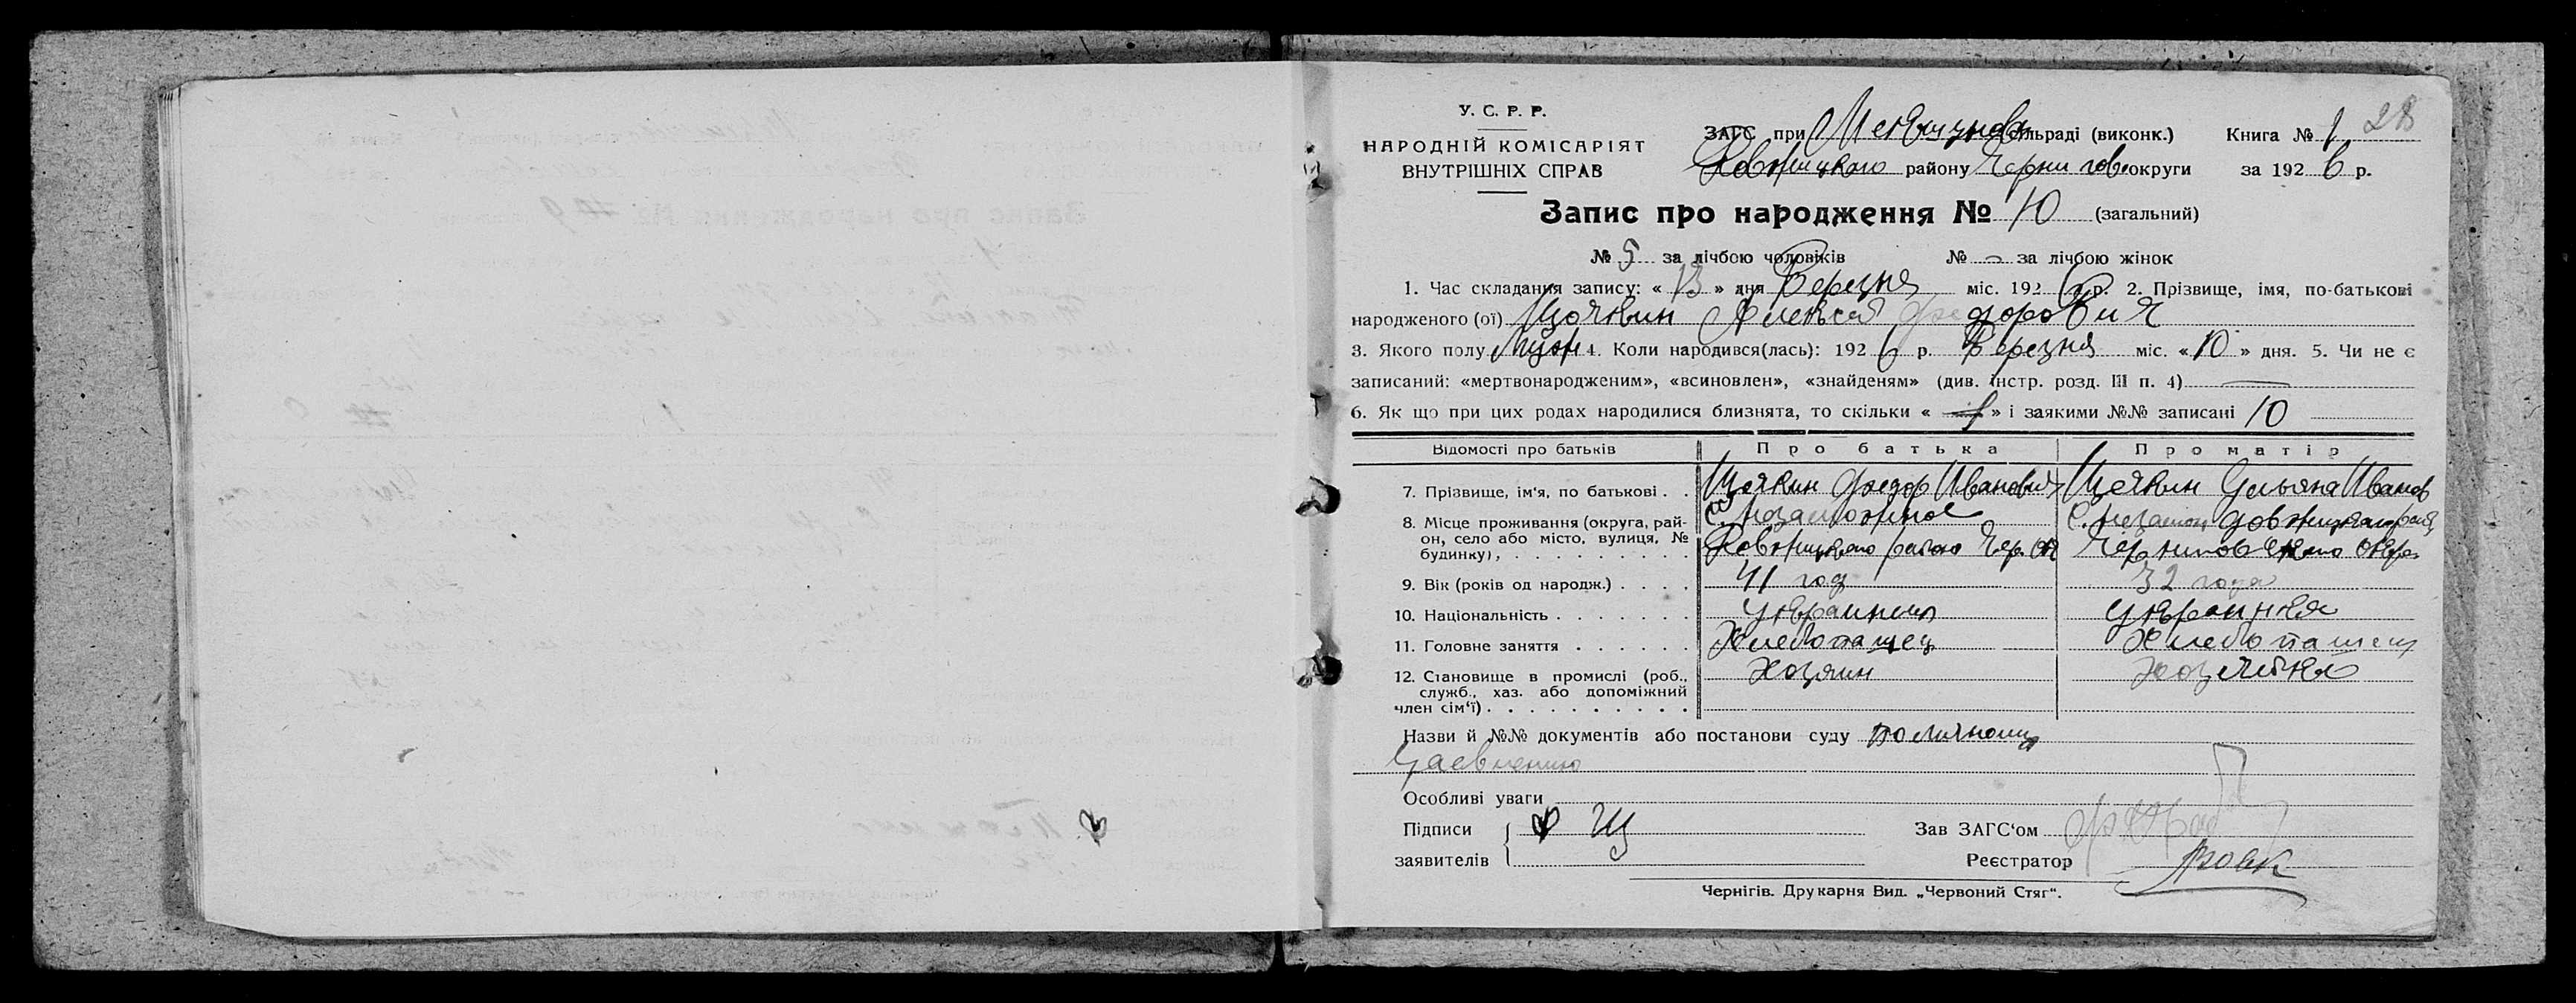 У. С. Р. Р.
НАРОДНІЙ КОМІСАРІЯТ
ВНУТРІШНІХ СПРАВ
ЗАГС при сільраді (виконк.) Книга № 1 28
району Чернигов округи за 192 6 р.
Запис про народження № 10 (загальний)
№ 5 за лічбою чоловіків № — за лічбою жінок
1. Час складання запису: « 13 » дня Березня міс. 192 6 р. 2. Прізвище, імя, по-батькові
народженого (ої) Алексей Федорович
3. Якого полу Муж 4. Коли народився(лась): 192 6 р. Березня міс. « 10 » дня. 5. Чи не є
записаний: «мертвонародженим», «всиновлен», «знайденям» (див. інстр. розд. III п. 4) —
6. Як що при цих родах народилися близнята, то скільки « » і заякими №№ записані 10
Відомості про батьків Про батька Про матір
7. Прізвище, ім'я, по батькові . . Федор Иванович Ульяна Иванов
8. Місце проживання (округа, рай-
он, село або місто, вулиця, №
будинку), . . . . . . . . . . района Чер. ок Черниговского окра
9. Вік (років од народж.) . . . . 41 год 32 года
10. Національність . . . . . . . украинец украинка
11. Головне заняття . . . . . . Хлебопашец Хлебопашец
12. Становище в промислі (роб.,
служб., хаз. або допоміжний
член сім'ї) . . . . . . . . . . Хозяин Хозяйка
Назви й №№ документів або постанови суду по личному
заявлению
Особливі уваги
Підписи Ф Щ Зав ЗАГС'ом
заявителів Реєстратор
Чернігів. Друкарня Вид. „Червоний Стяг".